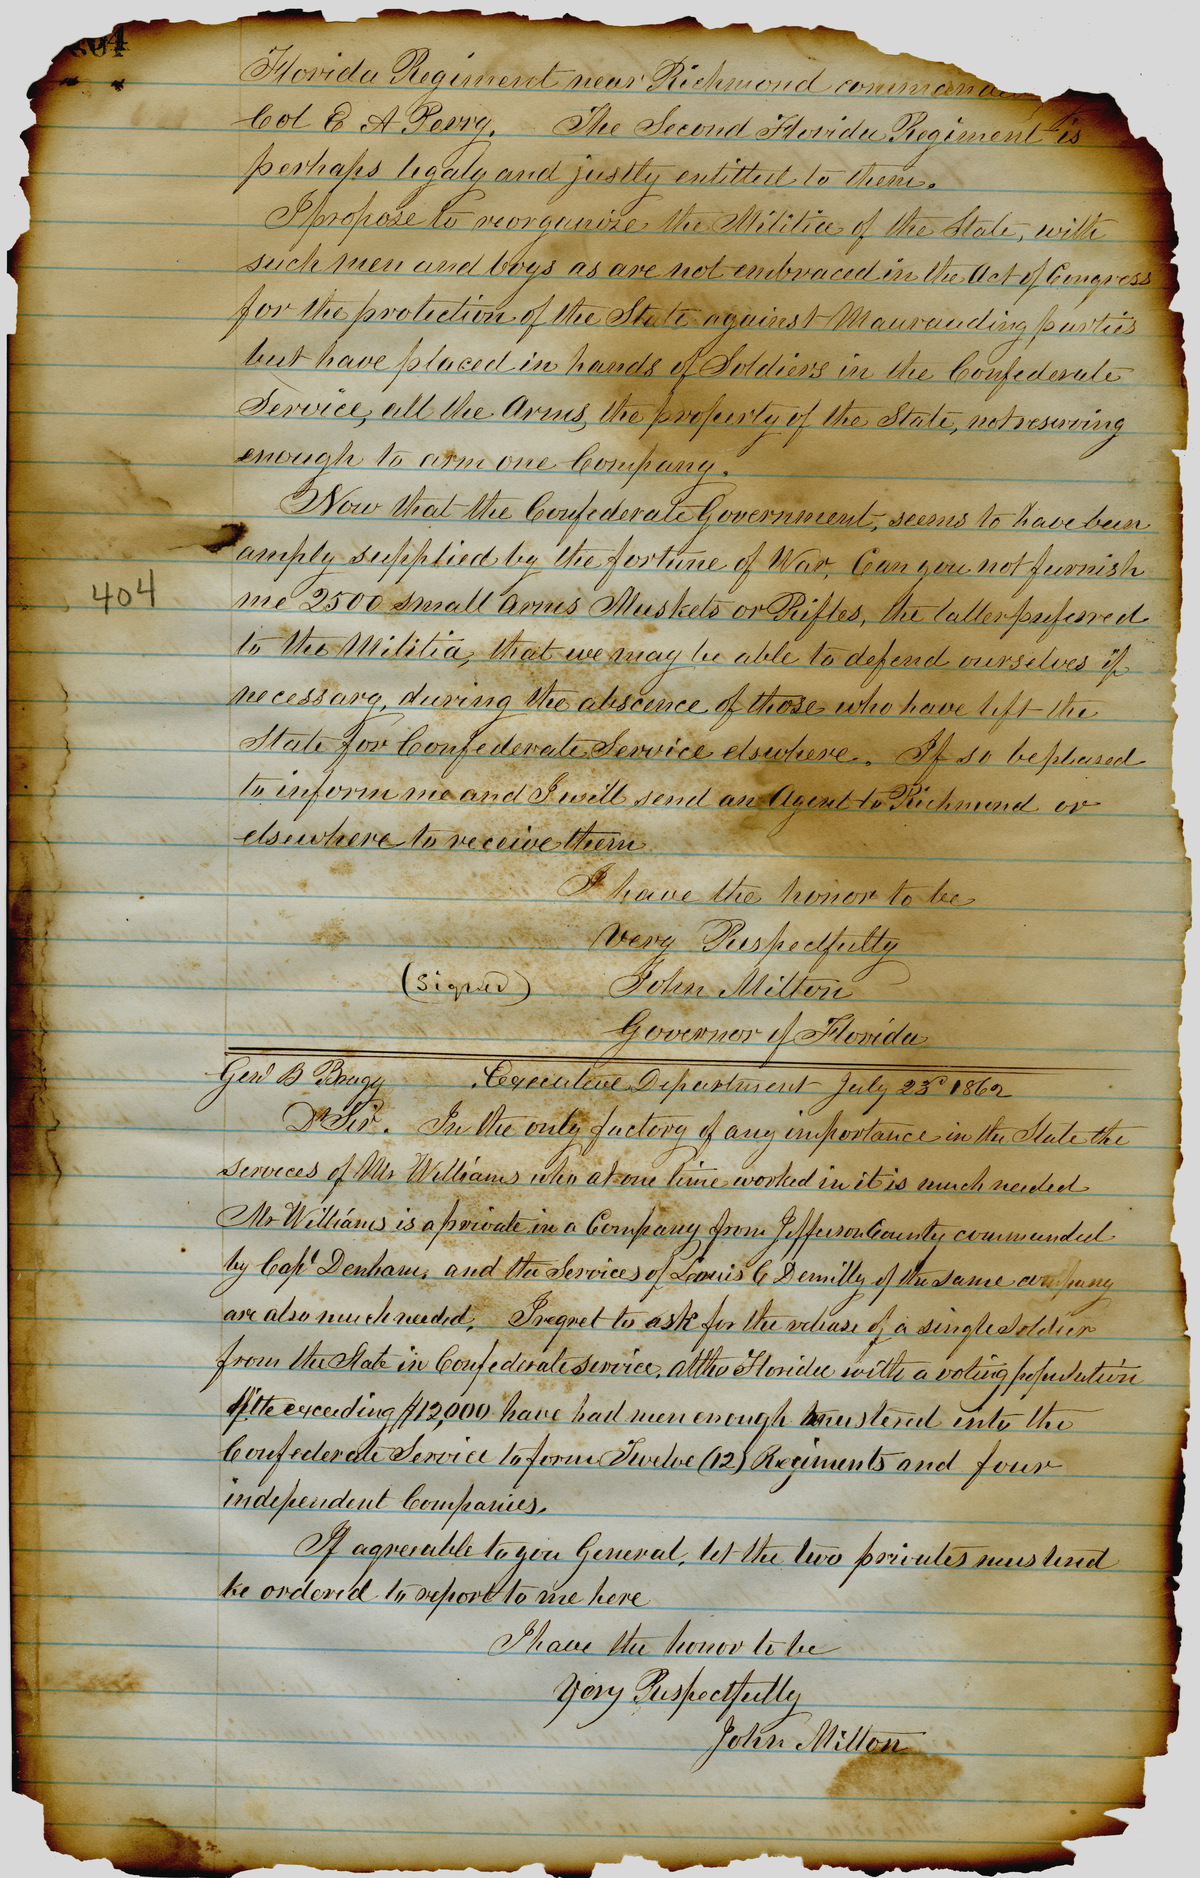 304
Florida Regiment near Richmond
Col E A Perry. The Second Florida Regiment is
perhaps legaly and justly entitled to them.
I propose to reorganize the Militia of the State, with
such men and boys as are not embraced in the Act of Congress
for the protection of the State against Maurauding parties
but have placed in hands of Soldiers in the Confederate
Service, all the Arms, the property of the State, not reserving
enough to arm one Company.
Now that the Confederate Government, seems to have been
amply supplied by the fortune of War, Can you not furnish
404
me 2500 small Arms Muskets or Rifles, the latter preferred
to the Militia, that we may be able to defend ourselves if
necessary, during the abscence of those who have left the
State for Confederate Service elsewhere. If so be pleased
to inform me and I will send an Agent to Richmond or
elsewhere to receive them
I have the honor to be
Very Respectfully
(Signed) John Milton
Governor of Florida
Genl B Bragg Executive Department July 23d 1862
Dr Sir. In the only factory of any importance in the State the
services of Mr Williams who at one time worked in it is much needed
Mr Williams is a private in a Company from Jefferson County commanded
by Capt Denham, and the Services of Louis C Demilly of the same company
are also much needed. I regret to ask for the release of a single Soldier
from the State in Confederate service, altho Florida with a voting population
little exceeding 12,000 have had men enough mustered into the
Confederate Service to form Twelve (12) Regiments and four
independent Companies.
If agreeable to you General, let the two privates
be ordered to report to me here
I have the honor to be
Very Respectfully
John Milton